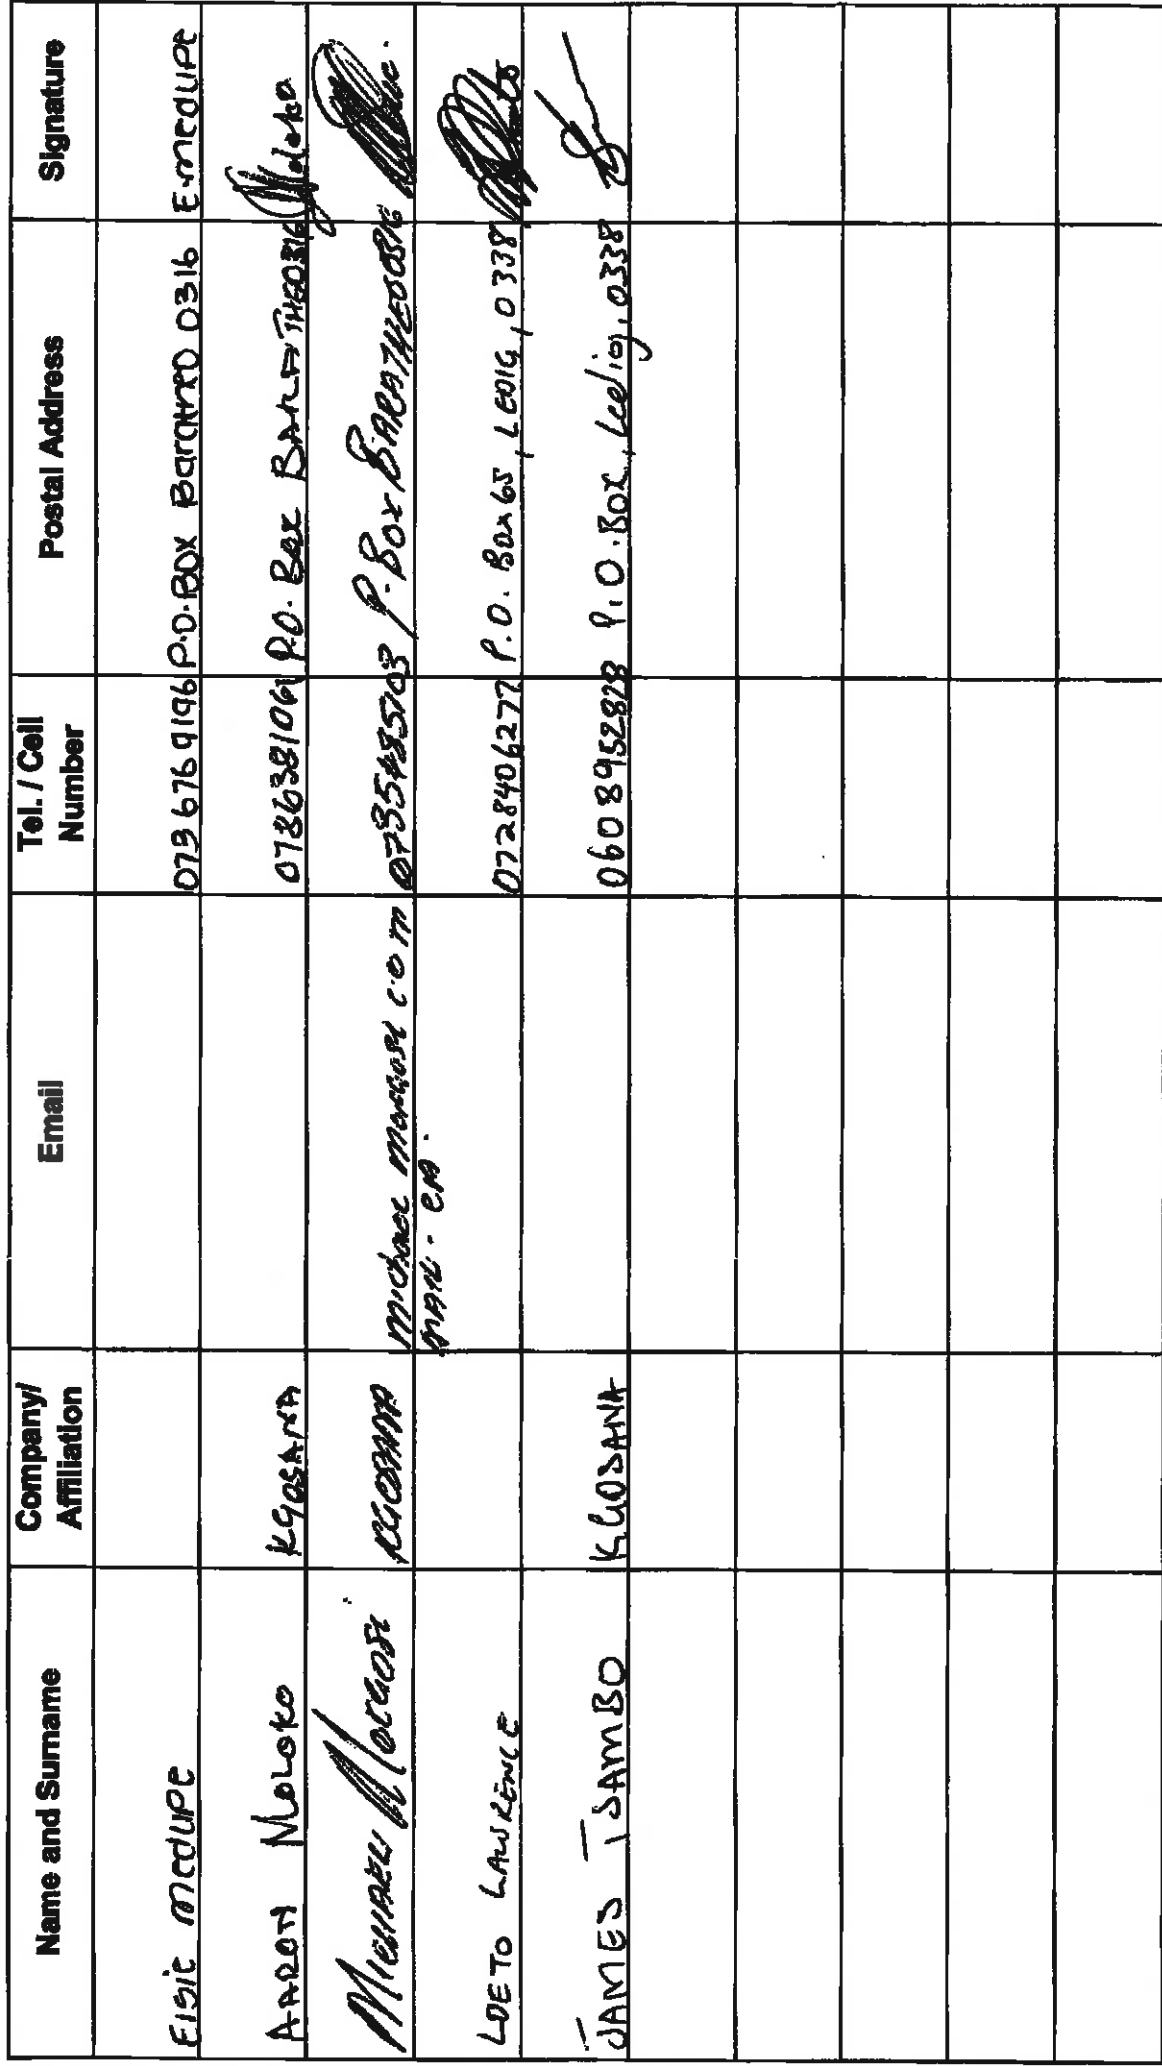 Name and Surname Company/ Affiliation Email Tel. / Cell Number Postal Address Signature
Elsie medupe 0736769196 P.O.BOX Baratheo 0316 E.medupe
AARON MOLOKO KgosANA 0786381061 P.O. Box BARATHEO 0316 Moloko
MICHAEL Morgosi KGOSANA michael morgosi c.o m 0735485103 P. Box BARATHEO 0316
LOETO LAWRENCE 0728406277 P.O. Box 65, LEDIG, 0338
JAMES TSAMBO KGOSANA 0608952828 P.O. Box, Ledig, 0338